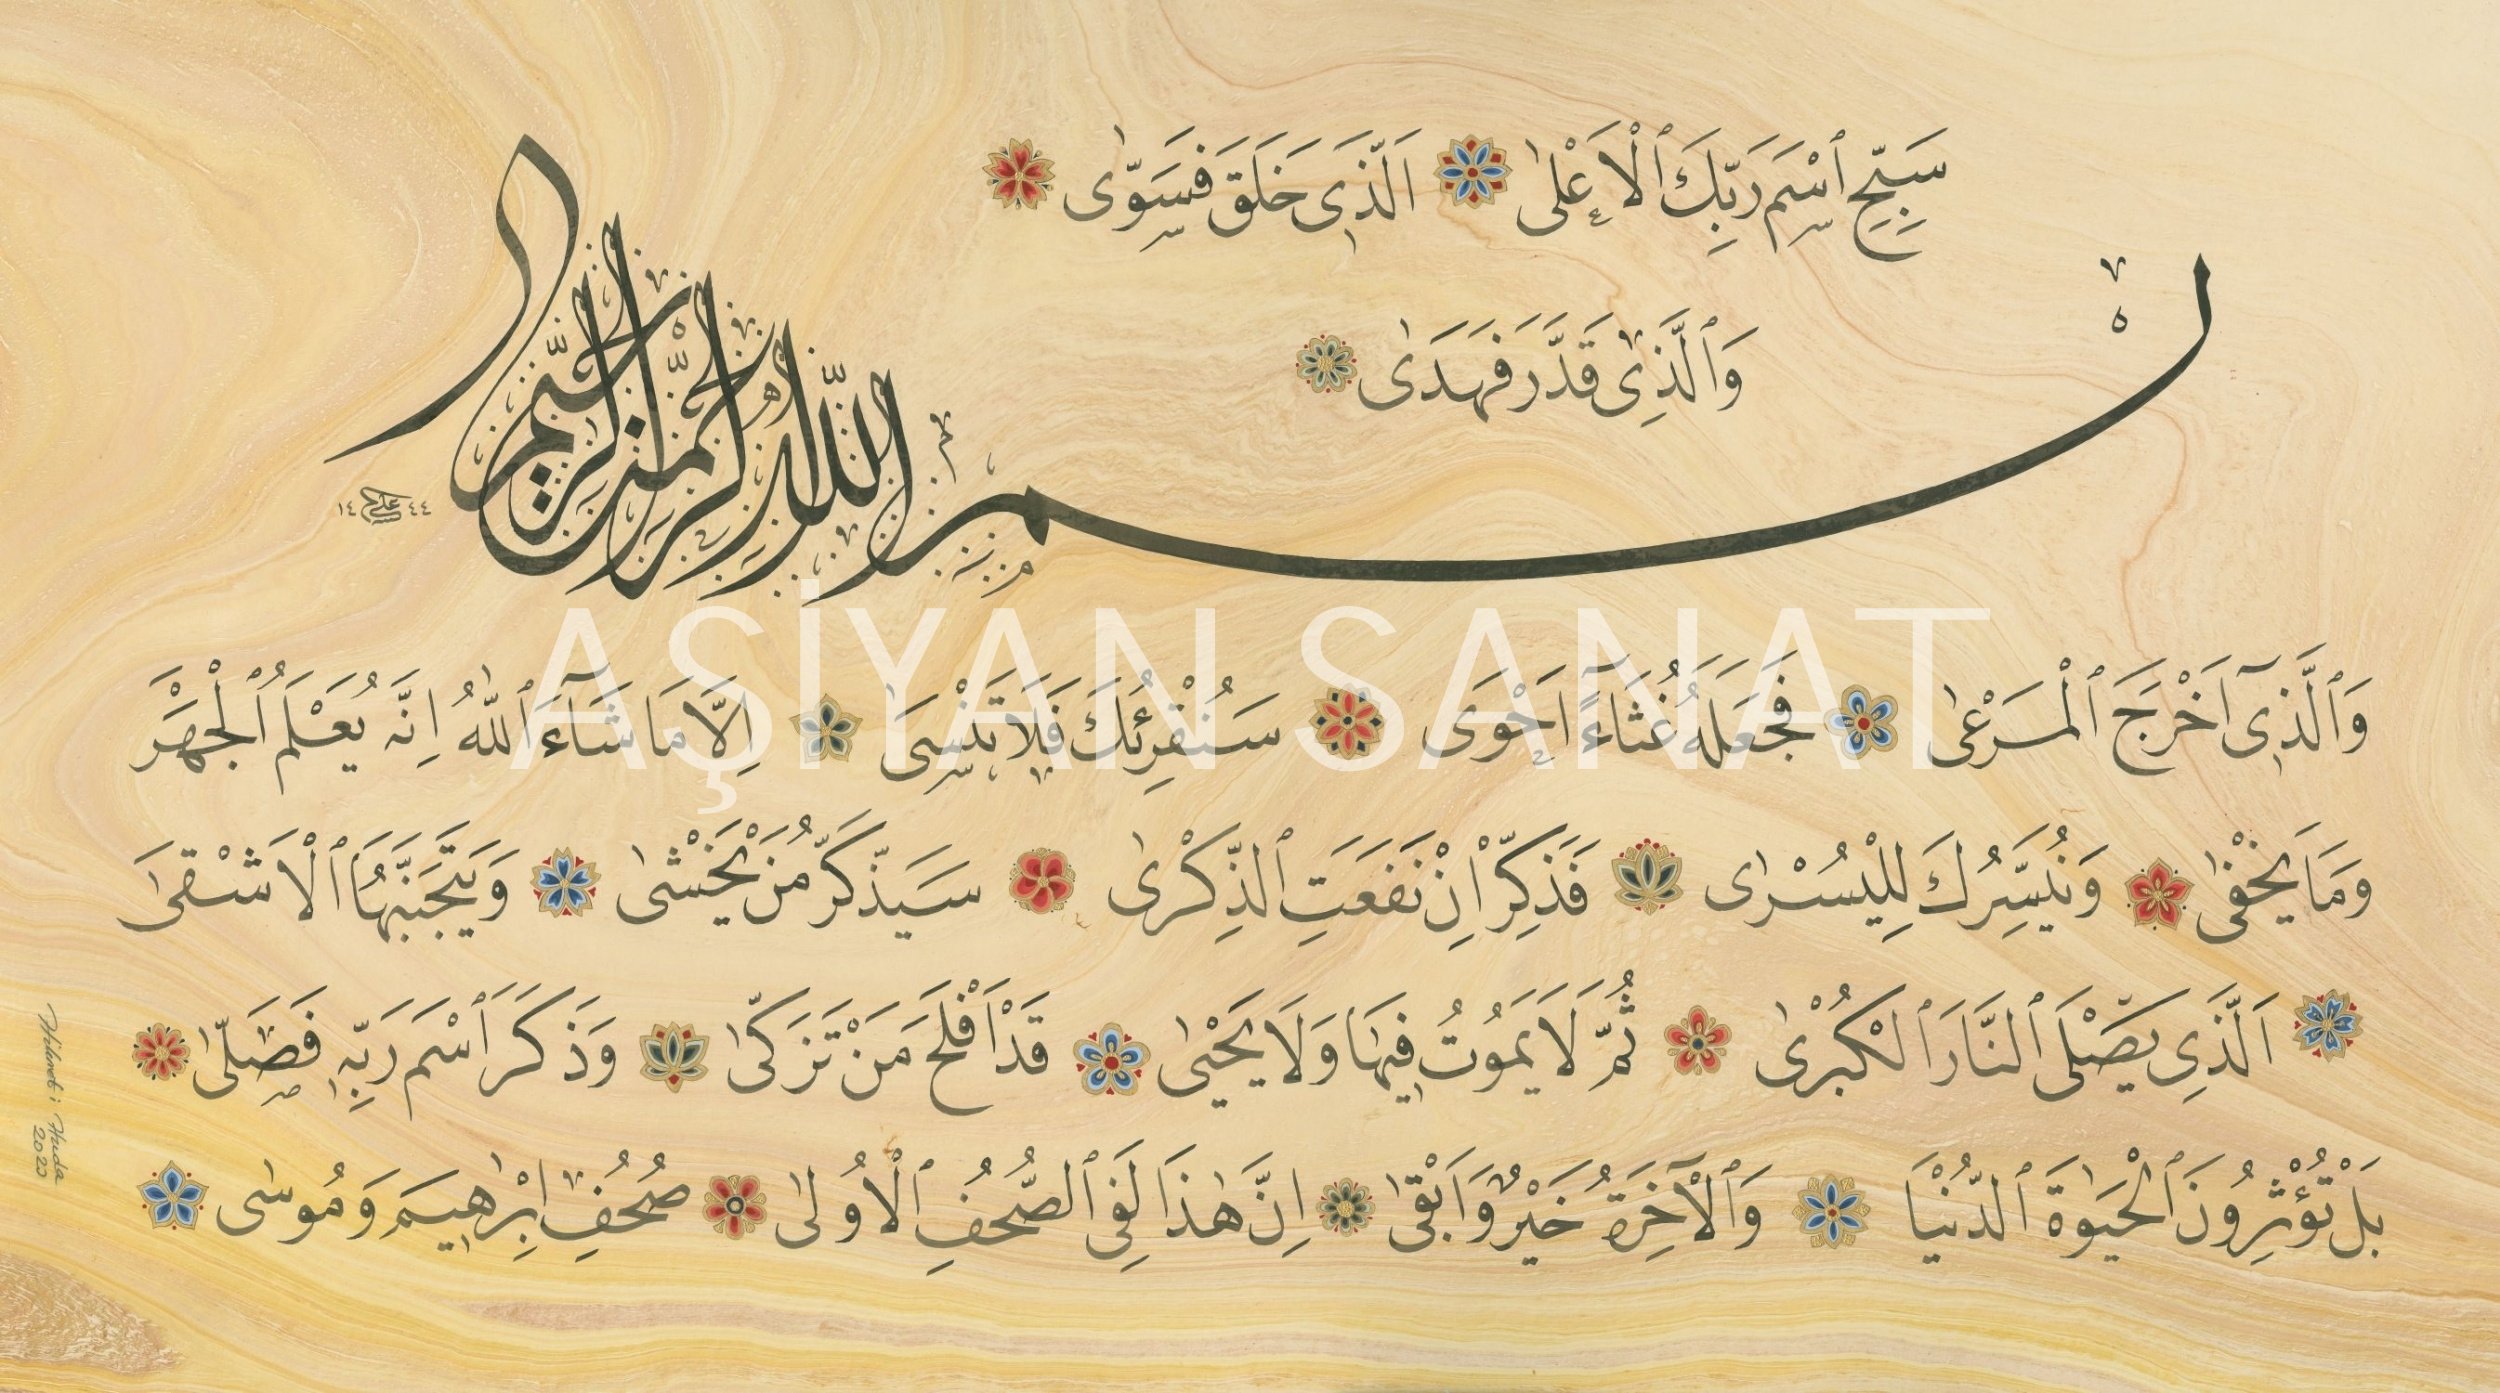 سَبِّحِ ٱسْمَ رَبِّكَ ٱلْاَعْلٰى اَلَّذٖى خَلَقَ فَسَوّٰى
وَٱلَّذٖى قَدَّرَ فَهَدٰى
بسم الله الرحمن الرحيم
١٤ علي ٤٤
وَٱلَّذٖٓى اَخْرَجَ ٱلْمَرْعٰى فَجَعَلَهُ غُثَآءً اَحْوٰى سَنُقْرِئُكَ فَلَا تَنْسٰى اِلَّا مَا شَآءَ ٱللّٰهُ اِنَّهُ يَعْلَمُ ٱلْجَهْرَ
وَمَا يَخْفٰى وَنُيَسِّرُكَ لِلْيُسْرٰى فَذَكِّرْ اِنْ نَفَعَتِ ٱلذِّكْرٰى سَيَذَّكَّرُ مَنْ يَخْشٰى وَيَتَجَنَّبُهَا ٱلْاَشْقٰى
اَلَّذٖى يَصْلَى ٱلنَّارَ ٱلْكُبْرٰى ثُمَّ لَا يَمُوتُ فٖيهَا وَلَا يَحْيٰى قَدْ اَفْلَحَ مَنْ تَزَكّٰى وَذَكَرَ ٱسْمَ رَبِّهٖ فَصَلّٰى
بَلْ تُؤْثِرُونَ ٱلْحَيٰوةَ ٱلدُّنْيَا وَٱلْاٰخِرَةُ خَيْرٌ وَاَبْقٰى اِنَّ هٰذَا لَفِى ٱلصُّحُفِ ٱلْاُولٰى صُحُفِ اِبْرٰهٖيمَ وَمُوسٰى
Hikmet-i Huda
2022
AŞİYAN SANAT